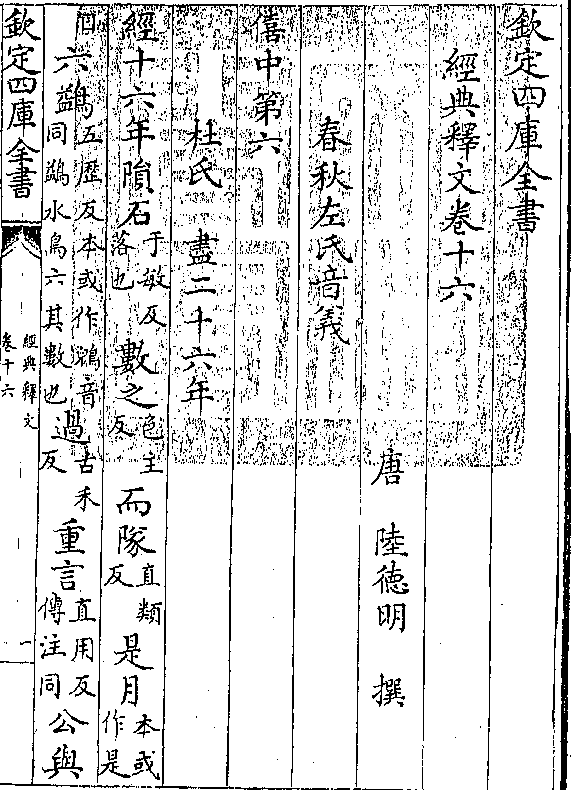 欽定四庫全書
經典釋文卷十六
唐 陸徳明 撰
春秋左氏音義
僖中第六
杜氏 盡二十六年
經十六年隕石于敏反落也數之色主反而隊直類反是月本或作是
六鷁五歷反本或作鶂音同鷁水鳥六其數也過古禾反重言直用反傳注同公與
欽定四庫全書
經典釋文
卷十六
一